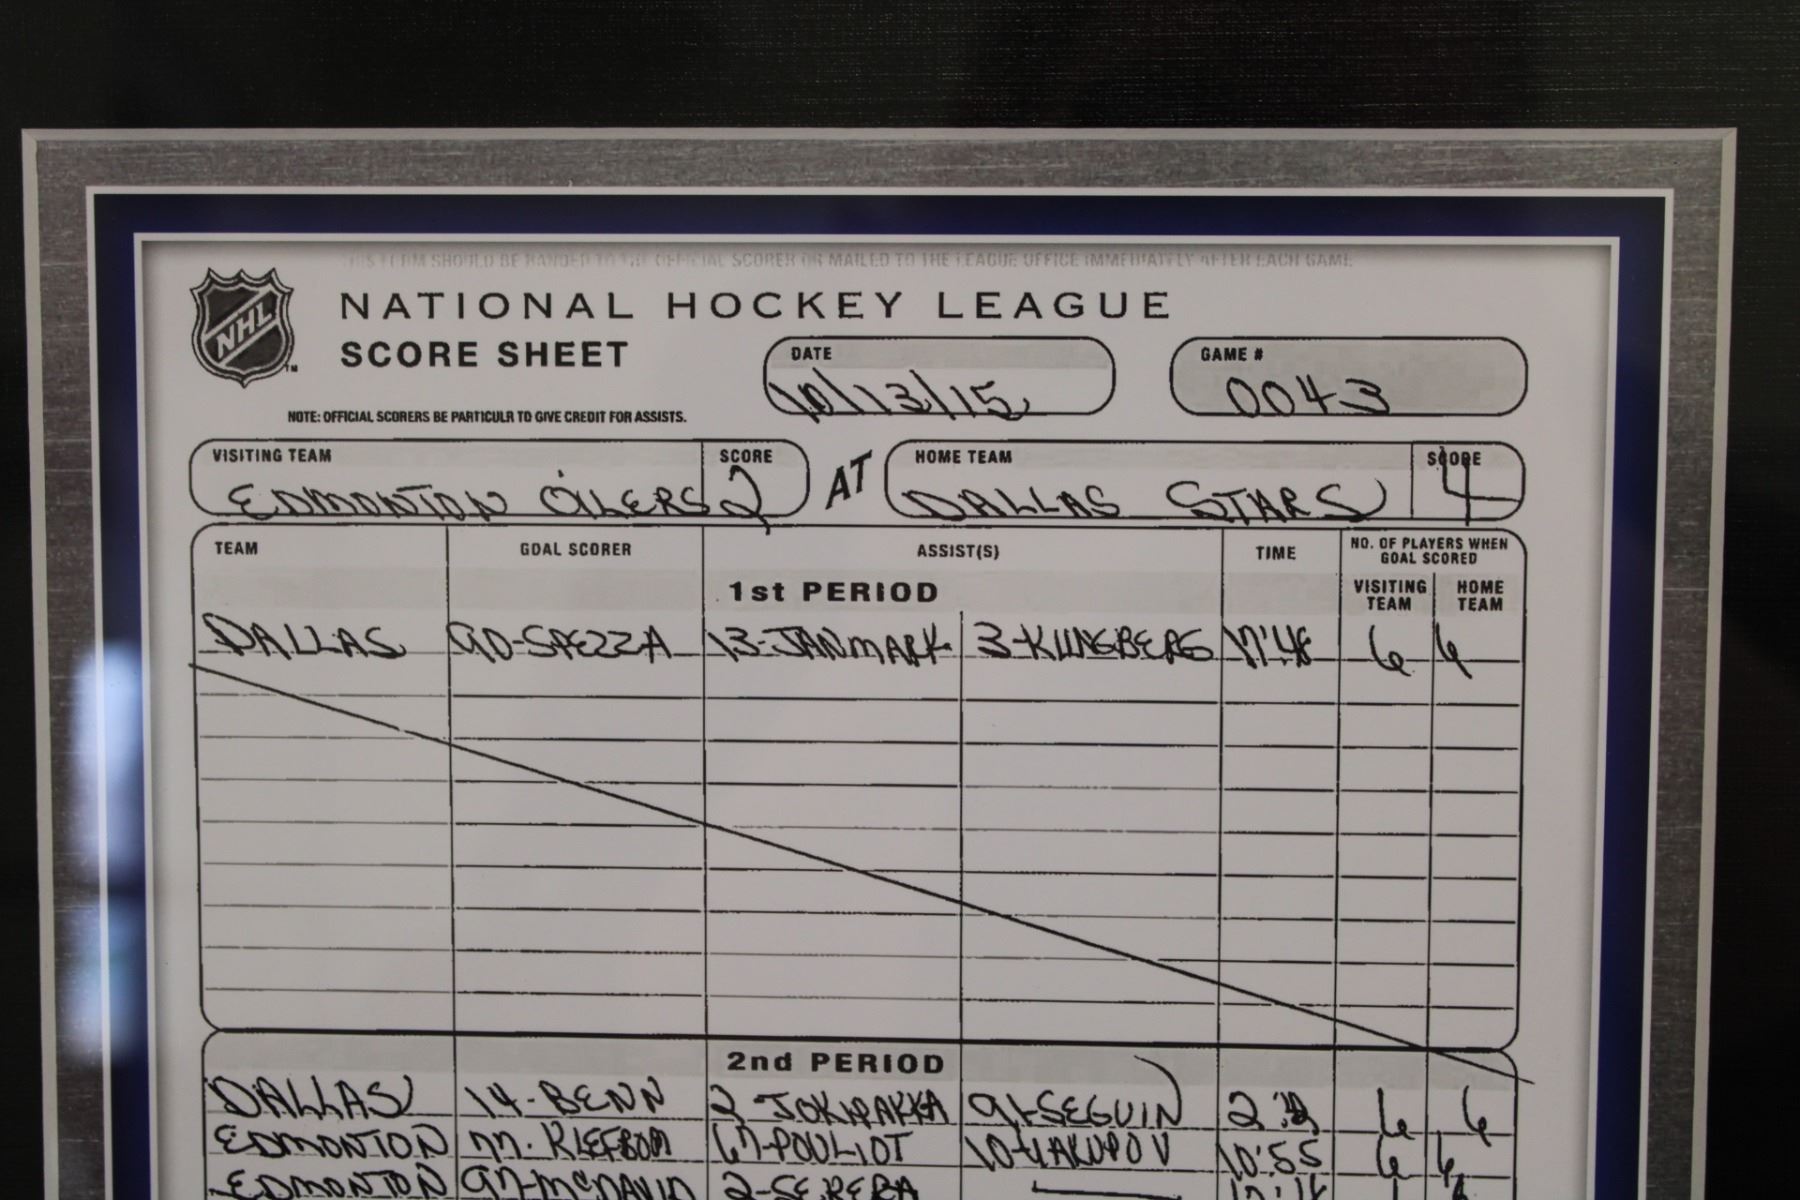 THIS FORM SHOULD BE HANDED TO THE OFFICIAL SCORER OR MAILED TO THE LEAGUE OFFICE IMMEDIATELY AFTER EACH GAME.
NHL TM
NATIONAL HOCKEY LEAGUE
SCORE SHEET
DATE
10/13/15
GAME #
0043
NOTE: OFFICIAL SCORERS BE PARTICULR TO GIVE CREDIT FOR ASSISTS.
VISITING TEAM SCORE
EDMONTON OILERS 2
AT
HOME TEAM SCORE
DALLAS STARS 4
TEAM GOAL SCORER ASSIST(S) TIME NO. OF PLAYERS WHEN GOAL SCORED
1st PERIOD VISITING TEAM HOME TEAM
DALLAS 90-SPEZZA 13-JANMARK 3-KLINGBERG 17:48 6 6
2nd PERIOD
DALLAS 14-BENN 2-JOKIPAKKA 91-SEGUIN 6 6
EDMONTON 77-KLEFBOM 67-POULIOT 10-YAKUPOV 10:55 6 6
EDMONTON 97-McDAVID 2-SEKERA